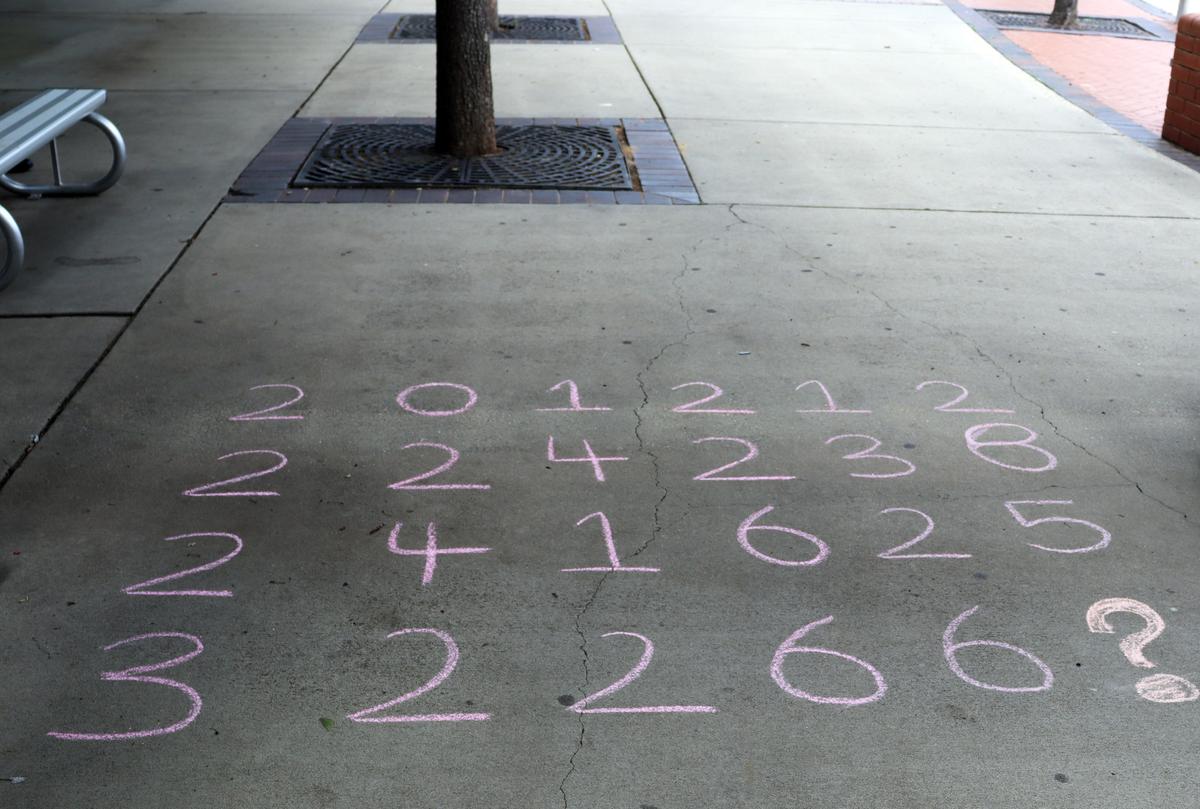 2 0 1 2 1 2
2 2 4 2 3 8
2 4 1 6 2 5
3 2 2 6 6 ?